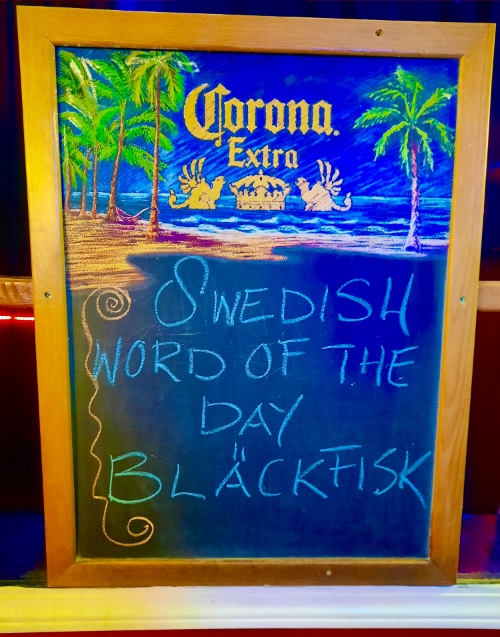 Corona.
Extra
SWEDISH
WORD OF THE
DAY
BLÄCKFISK